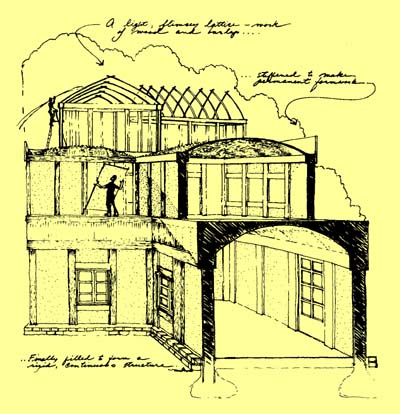 A light, flimsey lattice-work
of wood and burlap....
...stiffened to make
permanent formwork...
...Finally filled to form a
rigid, continuous structure